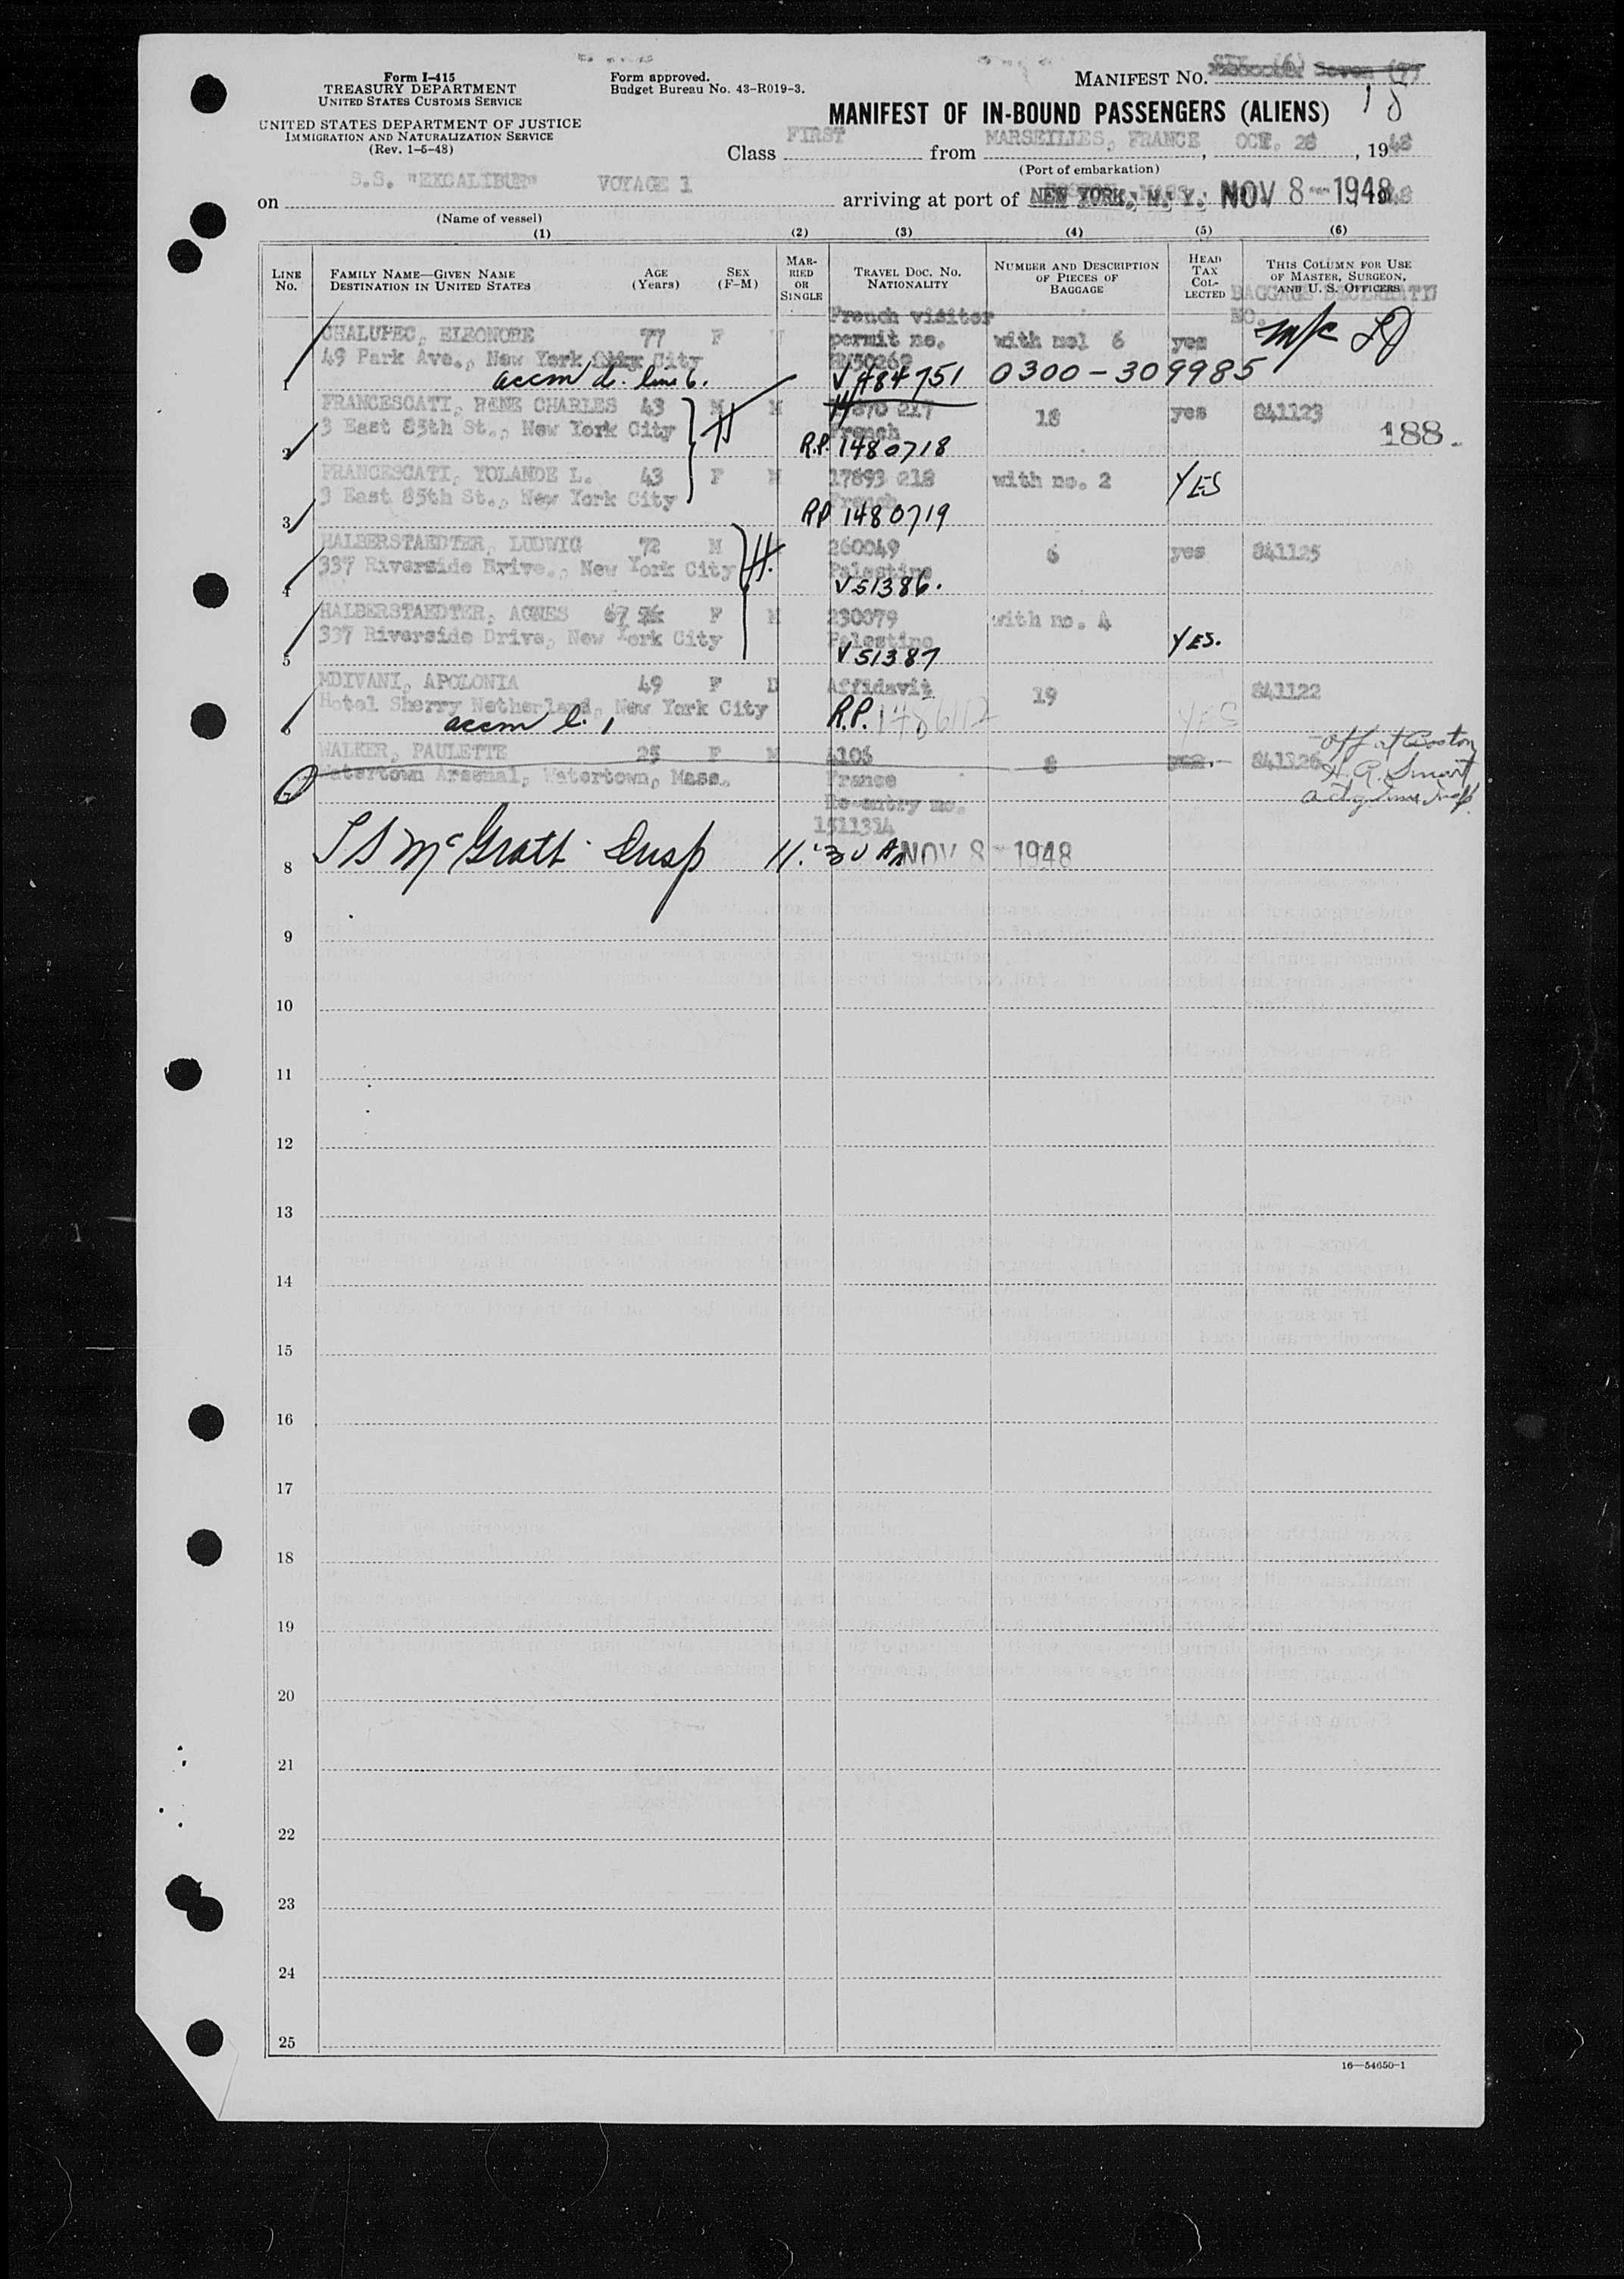 Form I-415
TREASURY DEPARTMENT
UNITED STATES CUSTOMS SERVICE
UNITED STATES DEPARTMENT OF JUSTICE
IMMIGRATION AND NATURALIZATION SERVICE
(Rev. 1-5-48)
Form approved.
Budget Bureau No. 43-R019-3.
MANIFEST NO. (6) Seven (7)
18
MANIFEST OF IN-BOUND PASSENGERS (ALIENS)
Class FIRST from MARSEILLES, FRANCE, OCT. 28, 1948
(Port of embarkation)
on S.S. "EXCALIBUR" VOYAGE 1 arriving at port of NEW YORK, N. Y. NOV 8 - 1948
(Name of vessel)
(1) (2) (3) (4) (5) (6)
LINE NO.
FAMILY NAME—GIVEN NAME
DESTINATION IN UNITED STATES
AGE (Years)
SEX (F-M)
MARRIED OR SINGLE
TRAVEL DOC. NO.
NATIONALITY
NUMBER AND DESCRIPTION OF PIECES OF BAGGAGE
HEAD TAX COLLECTED
THIS COLUMN FOR USE OF MASTER, SURGEON, AND U. S. OFFICERS
BAGGAGE DECLARATION NO.
1 CHALUPEC, ELEONORE 77 F French visitor permit no. with no1 6 yes
49 Park Ave., New York City
accm'd. line 6. V484751 0300-309985
2 FRANCESCATI, RENE CHARLES 43 M M 17870 217 18 yes 841123
3 East 85th St., New York City H French 188.
R.P. 1480718
3 FRANCESCATI, YOLANDE L. 43 F M 17893 218 with no. 2 YES
3 East 85th St., New York City French
RP 1480719
4 HALBERSTAEDTER, LUDWIG 72 M 260049 6 yes 841125
337 Riverside Drive., New York City H. Palestine
V51386.
5 HALBERSTAEDTER, AGNES 67 F M 230079 with no. 4
337 Riverside Drive, New York City Palestine YES.
V51387
6 MDIVANI, APOLONIA 49 F D Affidavit 19 841122
Hotel Sherry Netherland, New York City R.P. YES
accm l. 1
7 WALKER, PAULETTE 25 F M 4106 8 yes. 841126 off at Boston
Watertown Arsenal, Watertown, Mass. France H. A. Smart
Re-entry no.
1511314
8 McGrath Insp 11:30 AM NOV 8 - 1948
9
10
11
12
13
14
15
16
17
18
19
20
21
22
23
24
25
16—54650-1